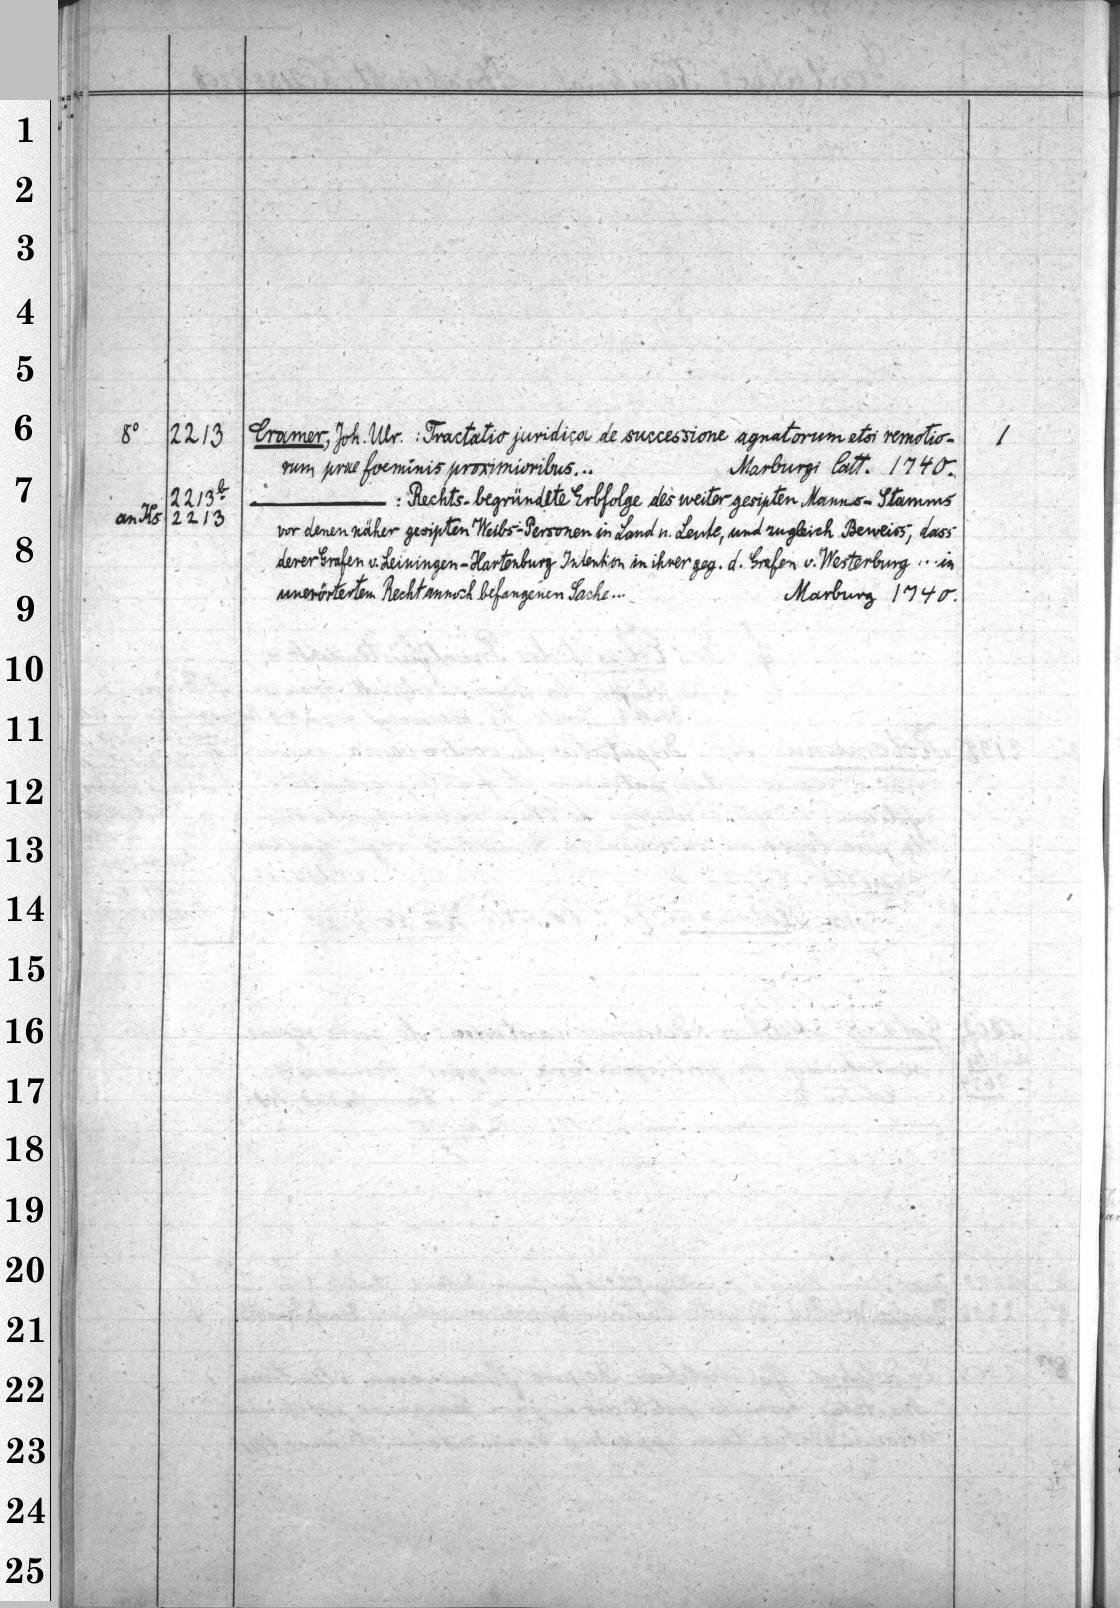 1
2
3
4
5
6
7
8
9
10
11
12
13
14
15
16
17
18
19
20
21
22
23
24
25
8° 2213 Cramer, Joh. Ulr. : Tractatio juridica de successione agnatorum etsi remotio- 1
rum prae foeminis proximioribus... Marburgi Catt. 1740.
2213b ——— : Rechts-begründete Erbfolge des weiter gesipten Manns-Stamms
an Hs 2213
vor denen näher gesipten Weibs-Personen in Land u. Leute, und zugleich Beweiss, dass
derer Grafen v. Leiningen-Hartenburg Intention in ihrer geg. d. Grafen v. Westerburg ... in
unerörtertem Recht annoch befangenen Sache... Marburg 1740.